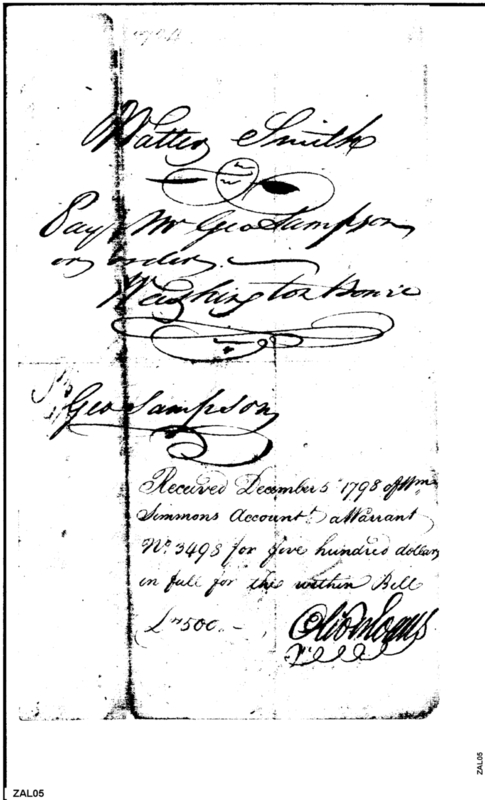 Walter Smith
Pay Mr Geo Sampson
or order
Washington Bowie
Geo Sampson
Received December 5 1798 of Wm
Simmons Accountt a Warrant
No 3498 for five hundred dollars
in full for the within Bill
500.
ZAL05
ZAL05